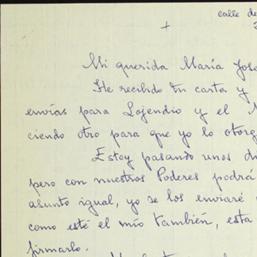 calle de
+
Mi querida María José
He recibido tu carta y
envías para Lojendio y el
ciendo otro para que yo lo otorg
Estoy pasando unos di
pero con nuestros Poderes podrá
asunto igual, yo se los enviaré
como esté el mío también, esta
firmarlo.